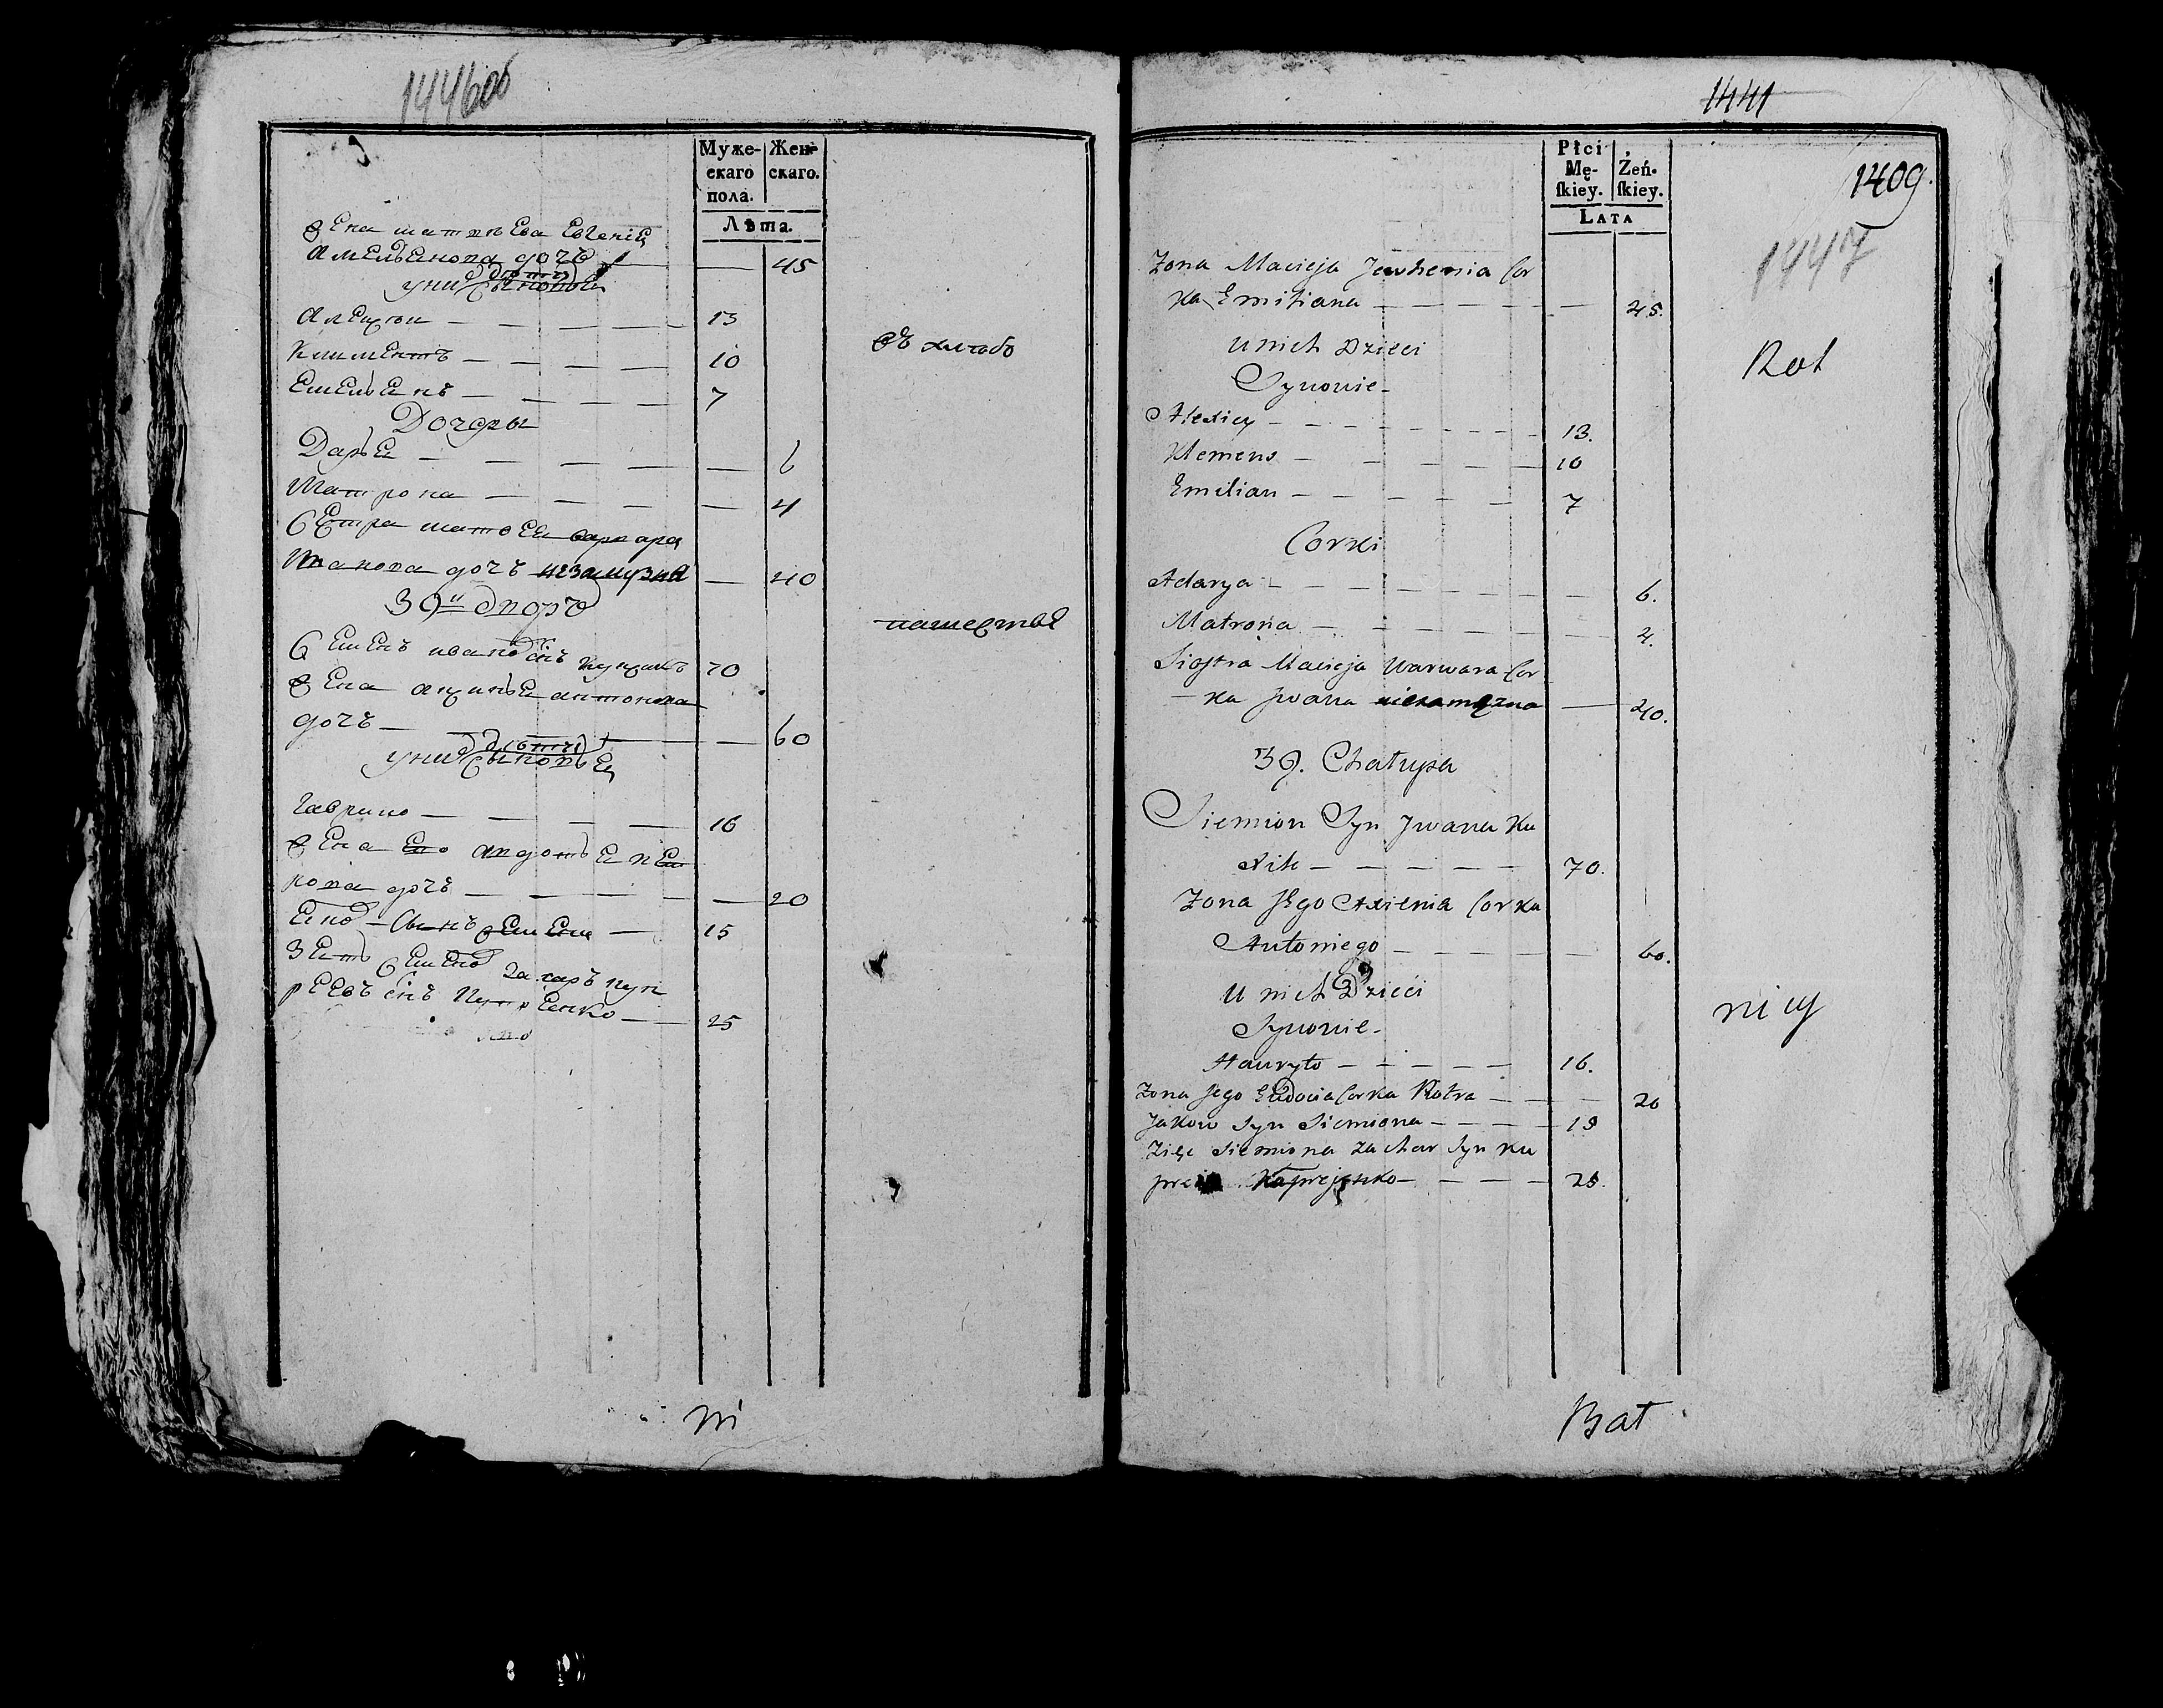 1446об
Муже-
скаго
пола.
Жен-
скаго.
Лѣта.
жена матвѣева евгенія
амельянова дочъ — 45
у них дѣти
сыновья
Алексѣй — 13
Климентъ — 10
Емельянъ — 7
Дочеры
Дарья — 6
Матрона — 4
Сестра матвея варвара
Иванова дочъ незамужня — 40
39й дворъ
Семенъ ивановъ сiнъ — 70
жена аксинья антонова
дочъ — 60
у них дѣти
сыновья
Гаврило — 16
жена его авдотья пет
рова дочъ — 20
сынъ — 15
зеть семена захаръ куп
реевъ сiнъ — 25
ni
1441
1409.
1447
Płci
Mę-
ſkiey.
Żeń-
ſkiey.
Lata
Zona Macieja Jewhenia Cor
ka Emiliana — 45.
U nich Dzieci
Synowie
Alexiey — 13.
Klemens — 10
Emilian — 7
Corki
Adarya — 6.
Matrona — 4.
Siostra Macieja Warwara Cor
ka Jwana niezamęzna — 40.
39. Chatupa
Siemion Syn Jwana Ku
— 70.
Zona Jego Axienia Corka
Antoniego — 60.
U nich Dzieci
Synowie
Hauryło — 16.
Zona Jego Eudocia Corka Piotra — 20
Jakow Syn Siemiona — 15
Zięc Siemiona Zachar Syn Ku
— 25.
nicy
Bat